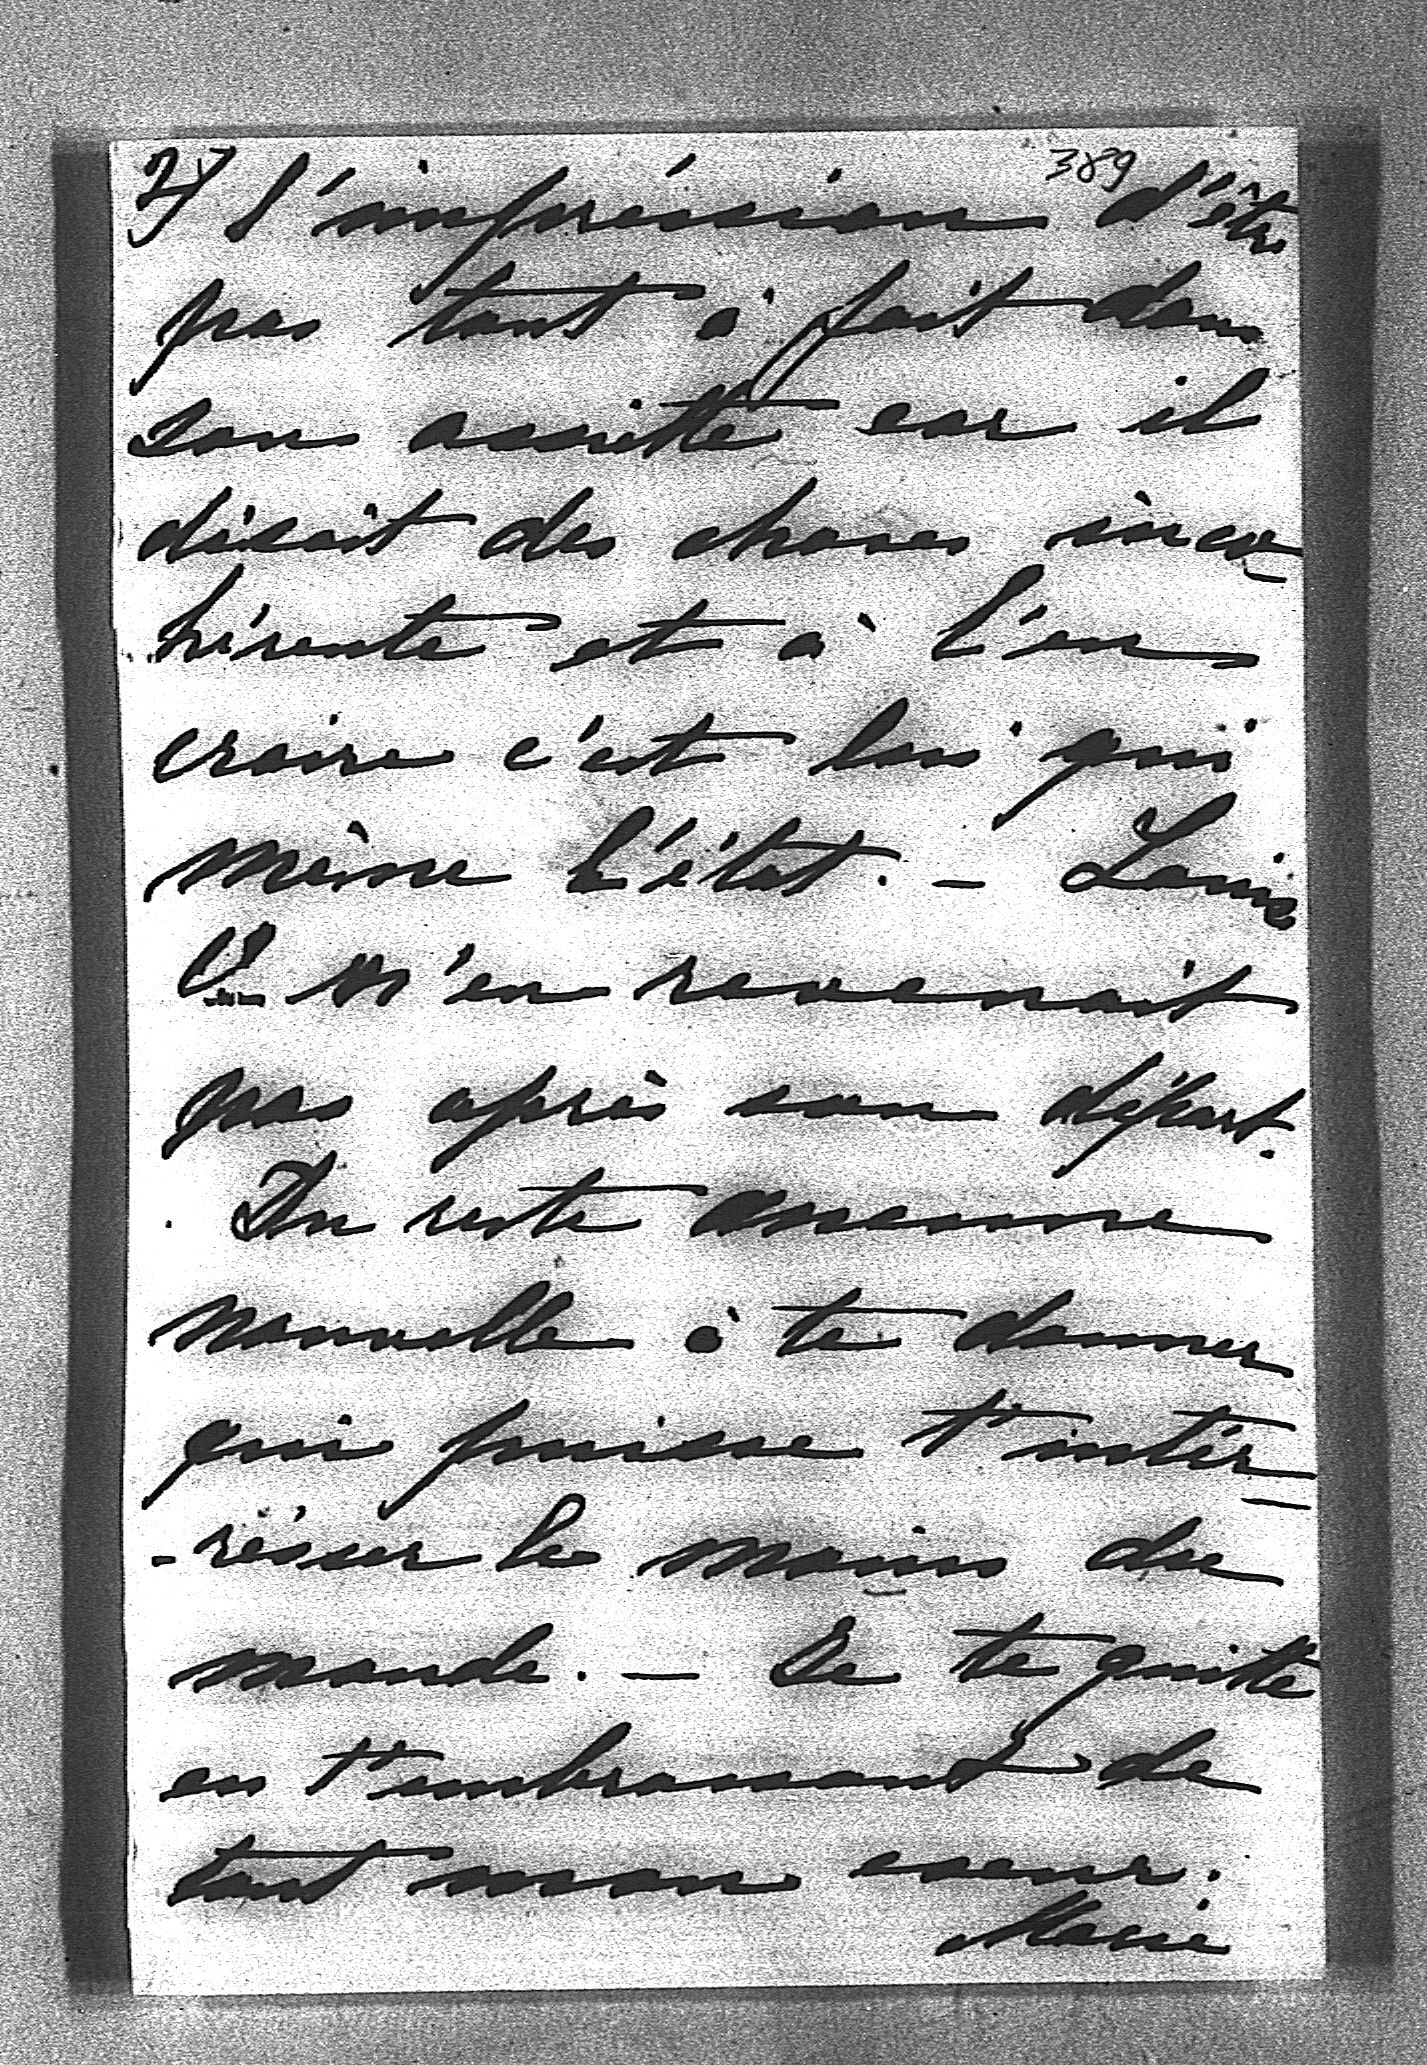 2) l'impréssion 389 d'être
pas tout à fait dans
son assiette car il
disait des choses inco
hérente et à l'en
croire c'est lui qui
mène l'état. - Louis
n'en revenait
pas après son départ.
Du reste aucune
nouvelle à te donner
qui puisse t'intér
-résser le moins du
monde. - Je te quitte
en t'embrassant de
tout mon coeur.
Marie